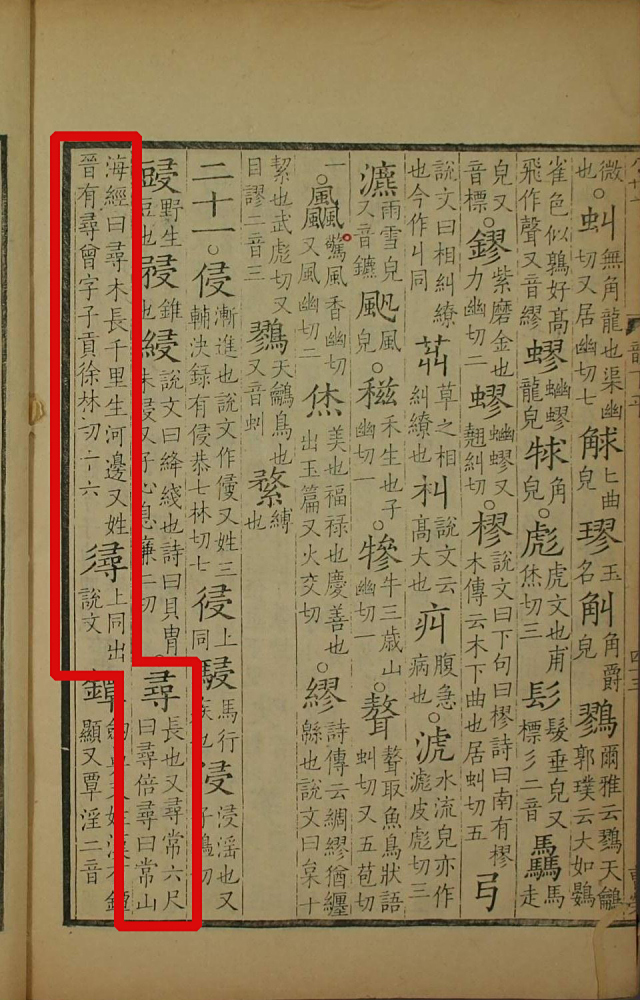 微也○虯無角龍也渠幽切又居幽切七觩匕曲皃璆玉名觓角爵皃鷚爾雅云鷚天鸙郭璞云大如鷃
雀色似鶉好高飛作聲又音繆蟉蚴蟉龍皃角皃○彪虎文也甫烋切三髟髮垂皃又標彡二音驫馬走
皃又音標○鏐紫磨金也力幽切二蟉蚴蟉又翹糾切○樛說文曰下句曰樛詩曰南有樛木傳云木下曲也居虯切五丩
說文曰相糾繚也今作丩同茻草之相糾繚也朻說文云高大也疝腹急病也○淲水流皃亦作滮皮彪切三
瀌雨雪皃又音鑣颩風皃○稵禾生也子幽切一○犙牛三歲山幽切一○聱聱取魚鳥狀語虯切又五苞切
一○飍驚風香幽切又風幽切二烋美也福祿也慶善也出玉篇又火交切○繆詩傳云綢繆猶纏緜也說文曰枲十
絜也武彪切又目謬二音三鷚天鸙鳥也又音虯縛也
二十一○侵漸進也說文作㑴又姓三輔決録有侵恭七林切七上同駸馬行疾也浸浸淫也又子鴆切
野生豆也錐也綅說文曰絳綫也詩曰貝冑朱綅又子心息廉二切○尋長也又尋常六尺曰尋倍尋曰常山
海經曰尋木長千里生河邊又姓晉有尋曾字子貢徐林切十六上同出說文鐔劒鼻又姓漢有鐔顯又覃淫二音